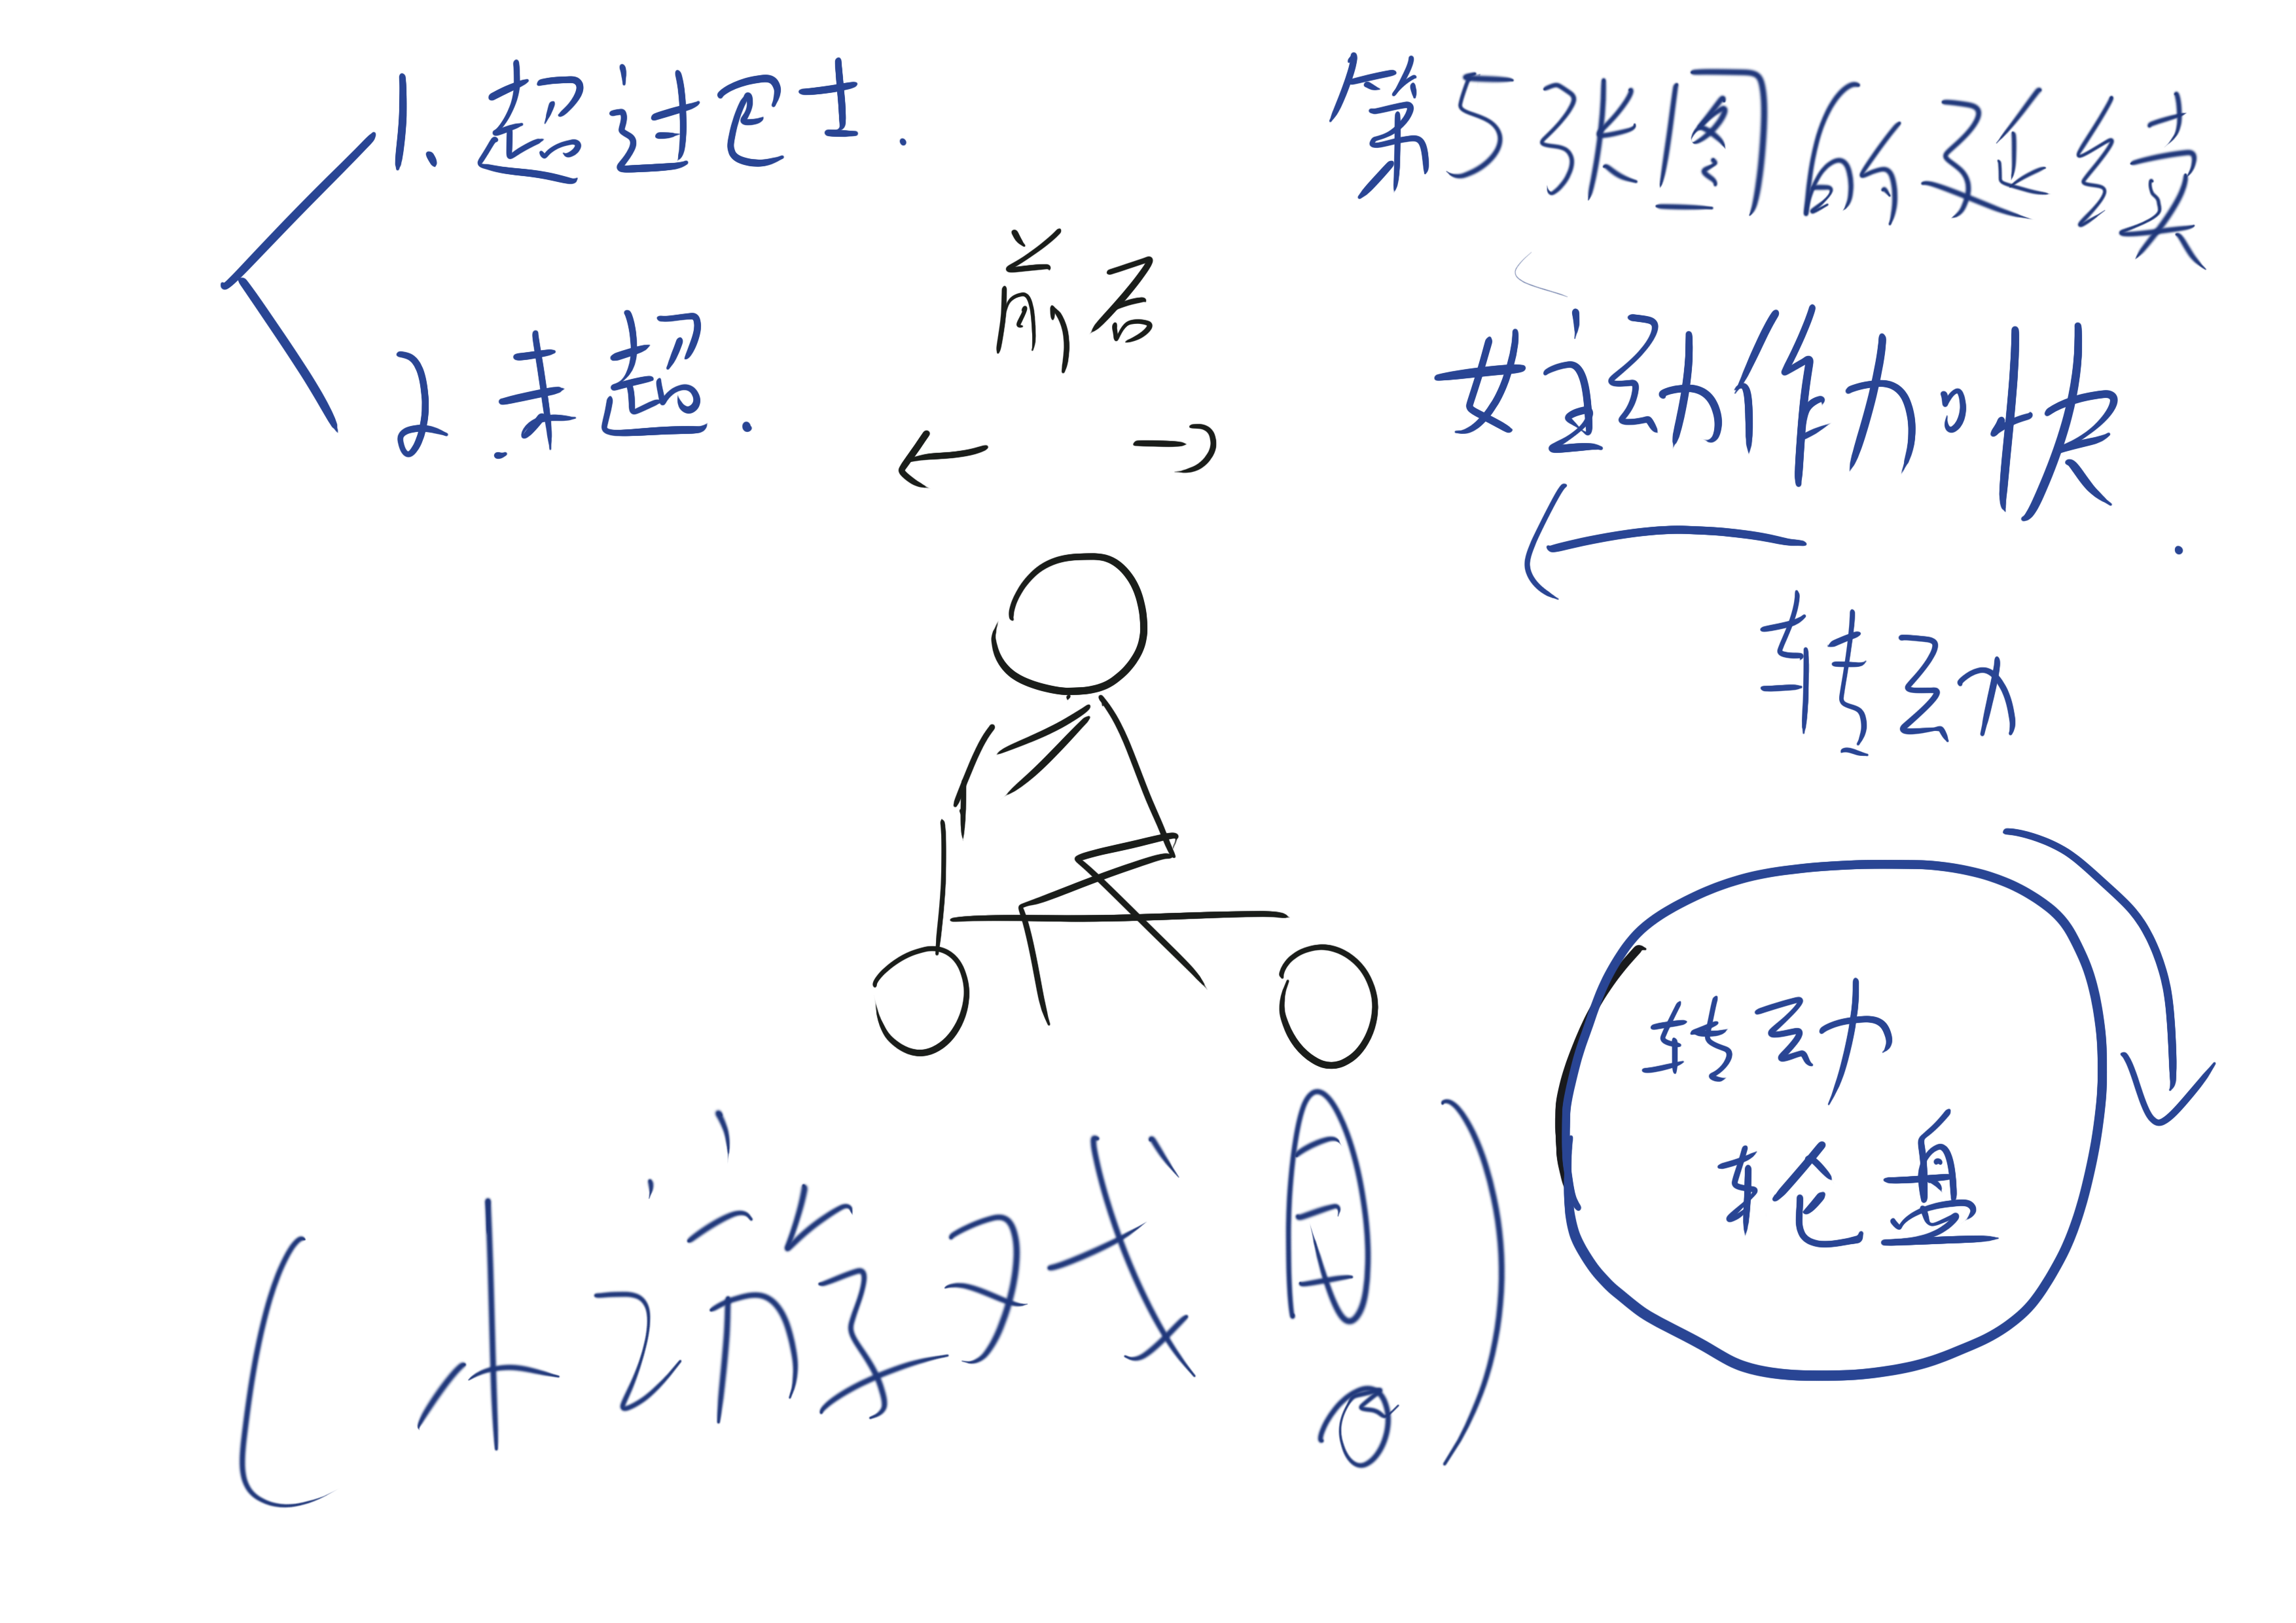 1. 超过巴士.
2. 未超.
前后
第5张图的延续
女主动作加快
转动
转动
轮盘
(小游戏 )